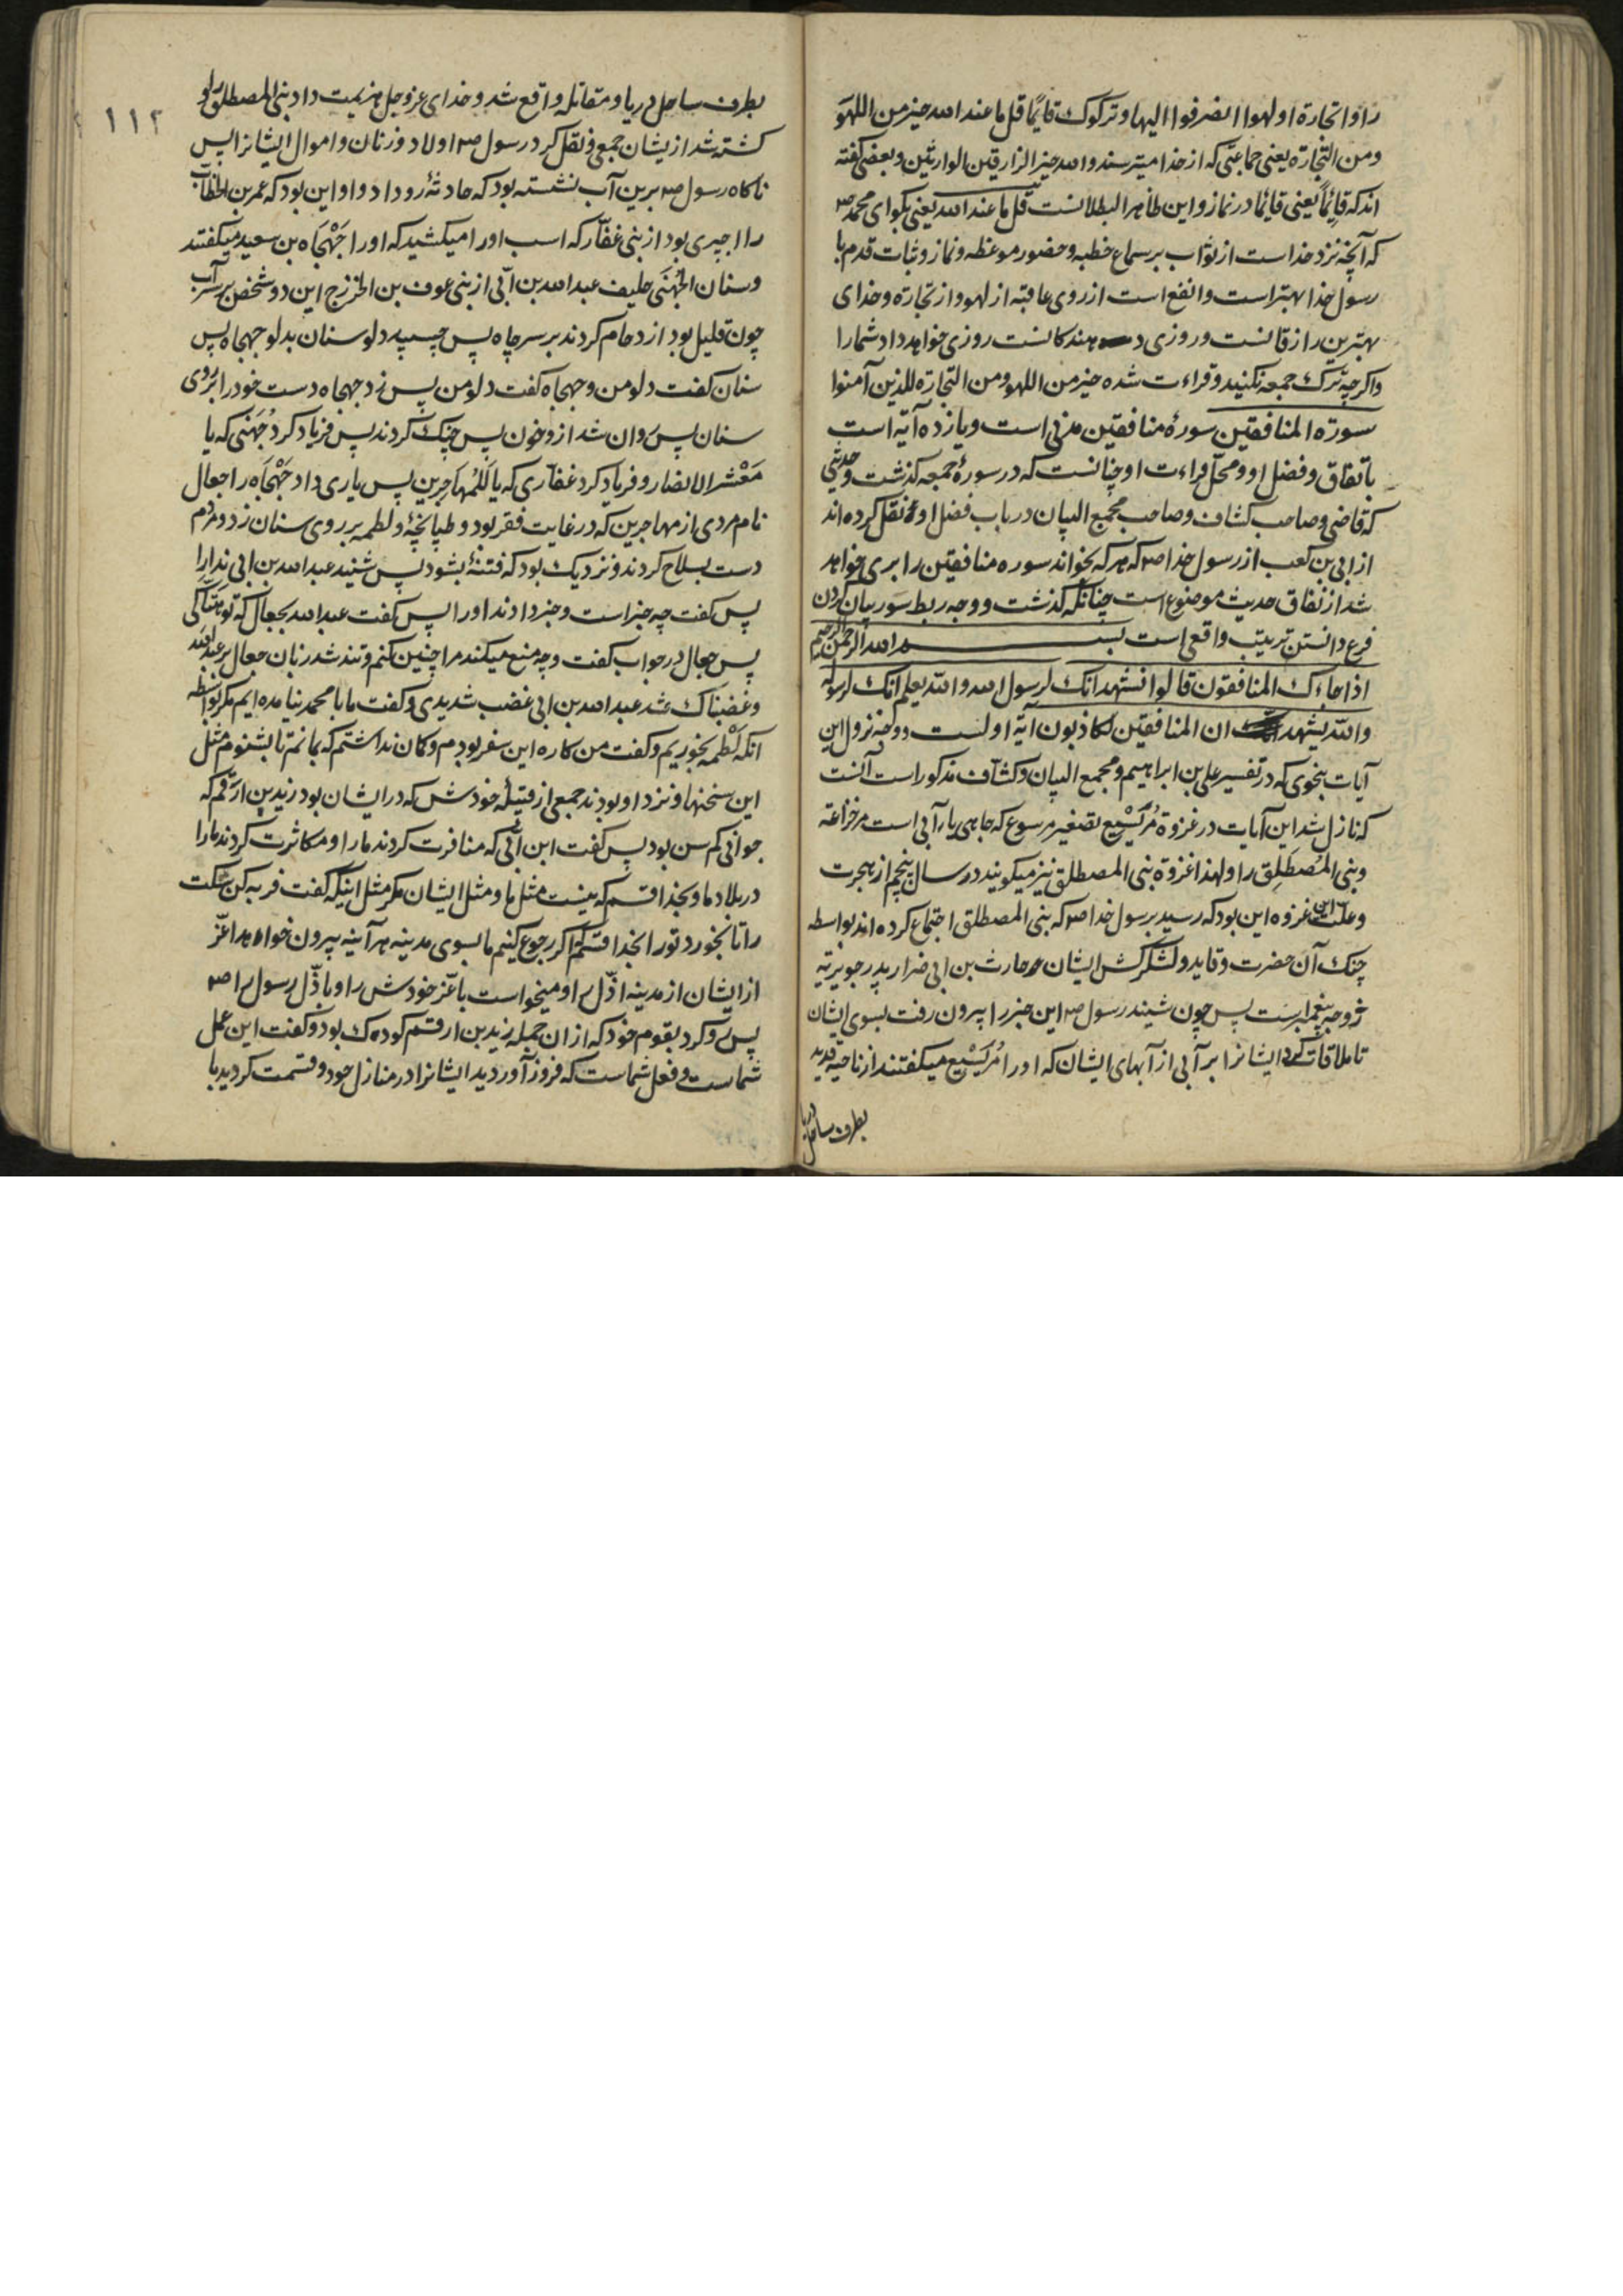 راوا تجارة او لهوا انفضوا الیها و ترکوک قایمًا قل ما عند الله خیر من اللهو
و من التجارة یعنی جماعتی که از خدا میترسند والله خیر الرازقین الوارثین و بعضی گفته
اند که قایمًا یعنی قایمًا در نماز و این ظاهر البطلانست قل ما عند الله یعنی بکو ای محمد ص
که آنچه نزد خداست از ثواب بر سماع خطبه و حضور موعظه و نماز و ثبات قدم با
رسول خدا بهتر است و انفع است از روی عاقبة از لهو و از تجارة و خدای
بهترین رازقانست و روزی دهندکانست روزی خواهد داد شما را
و اکرچه ترک جمعه نکنید و قراءت شده خیر من اللهو و من التجارة للذین آمنوا
سورة المنافقین سورهٔ منافقین مدنی است و یازده آیه است
باتفاق و فضل او و محلّ قراءت او چنانست که در سورهٔ جمعه کذشت و حدیثی
که قاضی و صاحب کشاف و صاحب مجمع البیان در باب فضل او نقل کرده اند
از ابی بن کعب از رسول خدا ص که هر که بخواند سوره منافقین را بری خواهد
شد از نفاق حدیث موضوع است چنانکه کذشت و وجه ربط سور بیان کردن
فرع دانستن ترتیب واقعی است بسم الله الرحمن الرحیم
اذا جاءک المنافقون قالوا نشهد انک لرسول الله والله یعلم انک لرسوله
والله یشهد ان المنافقین لکاذبون آیهٔ اولست و وجه نزول این
آیات بنحوی که در تفسیر علی بن ابراهیم و مجمع البیان و کشاف مذکور است آنست
که نازل شد این آیات در غزوة مُرَیْسِیع تصغیر مرسوع که چاهی یا آبی است مر خزاعة
و بنی المُصطَلِق را و لهذا غزوة بنی المصطلق نیز میکویند در سال پنجم از هجرت
و علت این غزوه این بود که رسید برسول خدا ص که بنی المصطلق اجتماع کرده اند بواسطه
جنک آن حضرت و قاید و لشکرکش ایشان حارث بن ابی ضرار پدر جویریّه
زوجه پیغمبر است پس چون شنید رسول ص این خبر را بیرون رفت بسوی ایشان
تا ملاقات کرد ایشانرا بر آبی از آبهای ایشان که او را مُرَیْسِیع میکفتند از ناحیه قدید
بطرف ساحل دریا
۱۱۲
بطرف ساحل دریا و مقاتله واقع شد و خدای عزوجل هزیمت داد بنی المصطلق را و
کشته شد از یشان جمعی و نقل کرد رسول ص اولاد و زنان و اموال ایشانرا پس
ناکاه رسول ص برین آب نشسته بود که حادثهٔ رو داد و او این بود که عمر بن الخطاب
را اجیری بود از بنی غفّار که اسب او را میکشید که او را جَهْجَاه بن سعید میکفتند
و سنان الجُهَنی حلیف عبدالله بن ابّی از بنی عوف بن الخزرج این دو شخص بر سر آب
چون قلیل بود ازدحام کردند بر سر چاه پس چسپید دلو سنان بدلو جهجاه پس
سنان کفت دلو من و جهجاه کفت دلو من پس زد جهجاه دست خود را بر روی
سنان پس روان شد از و خون پس جنک کردند پس فریاد کرد جُهَنی که یا
مَعْشر الانصار و فریاد کرد غفاری که یا لَلمُهاجِرین پس یاری داد جَهْجَاه را جعال
نام مردی از مهاجرین که در غایت فقر بود و طپانچهٔ و لطمه بر روی سنان زد و مردم
دست بسلاح کردند و نزدیک بود که فتنهٔ بشود پس شنید عبدالله بن ابی ندا را
پس کفت چه خبر است و خبر دادند او را پس کفت عبدالله بجعال که تو هتّاکی
پس جعال در جواب کفت و چه منع میکند مرا چنین کنم و تند شد زبان جعال بر عبدالله
و غضبناک شد عبدالله بن ابی غضب شدیدی و کفت ما با محمد نیامده ایم مکر بواسطه
آنکه لَطْمه بخوریم و کفت من کاره این سفر بودم و کمان نداشتم که بمانم تا بشنوم مثل
این سخنها و نزد او بودند جمعی از قبیلهٔ خودش که در ایشان بود زید بن ارقم که
جوانی کم سن بود پس کفت ابن ابّی که منافرت کردند ما را و مکاثرت کردند ما را
در بلاد ما و بخدا قسم که نیست مثل ما و مثل ایشان مکر مثل اینکه کفت فربه کن سکت
را تا بخورد تو را بخدا قسم که اکر رجوع کنیم ما بسوی مدینه هر آینه بیرون خواهد اعزّ
از ایشان از مدینه اذّل را و میخواست با عّز خودش را و با ذّل رسول را ص
پس رو کرد بقوم خود که از ان جمله زید بن ارقم کودک بود و کفت این عمل
شماست و فعل شماست که فروز آوردید ایشانرا در منازل خود و قسمت کردید با